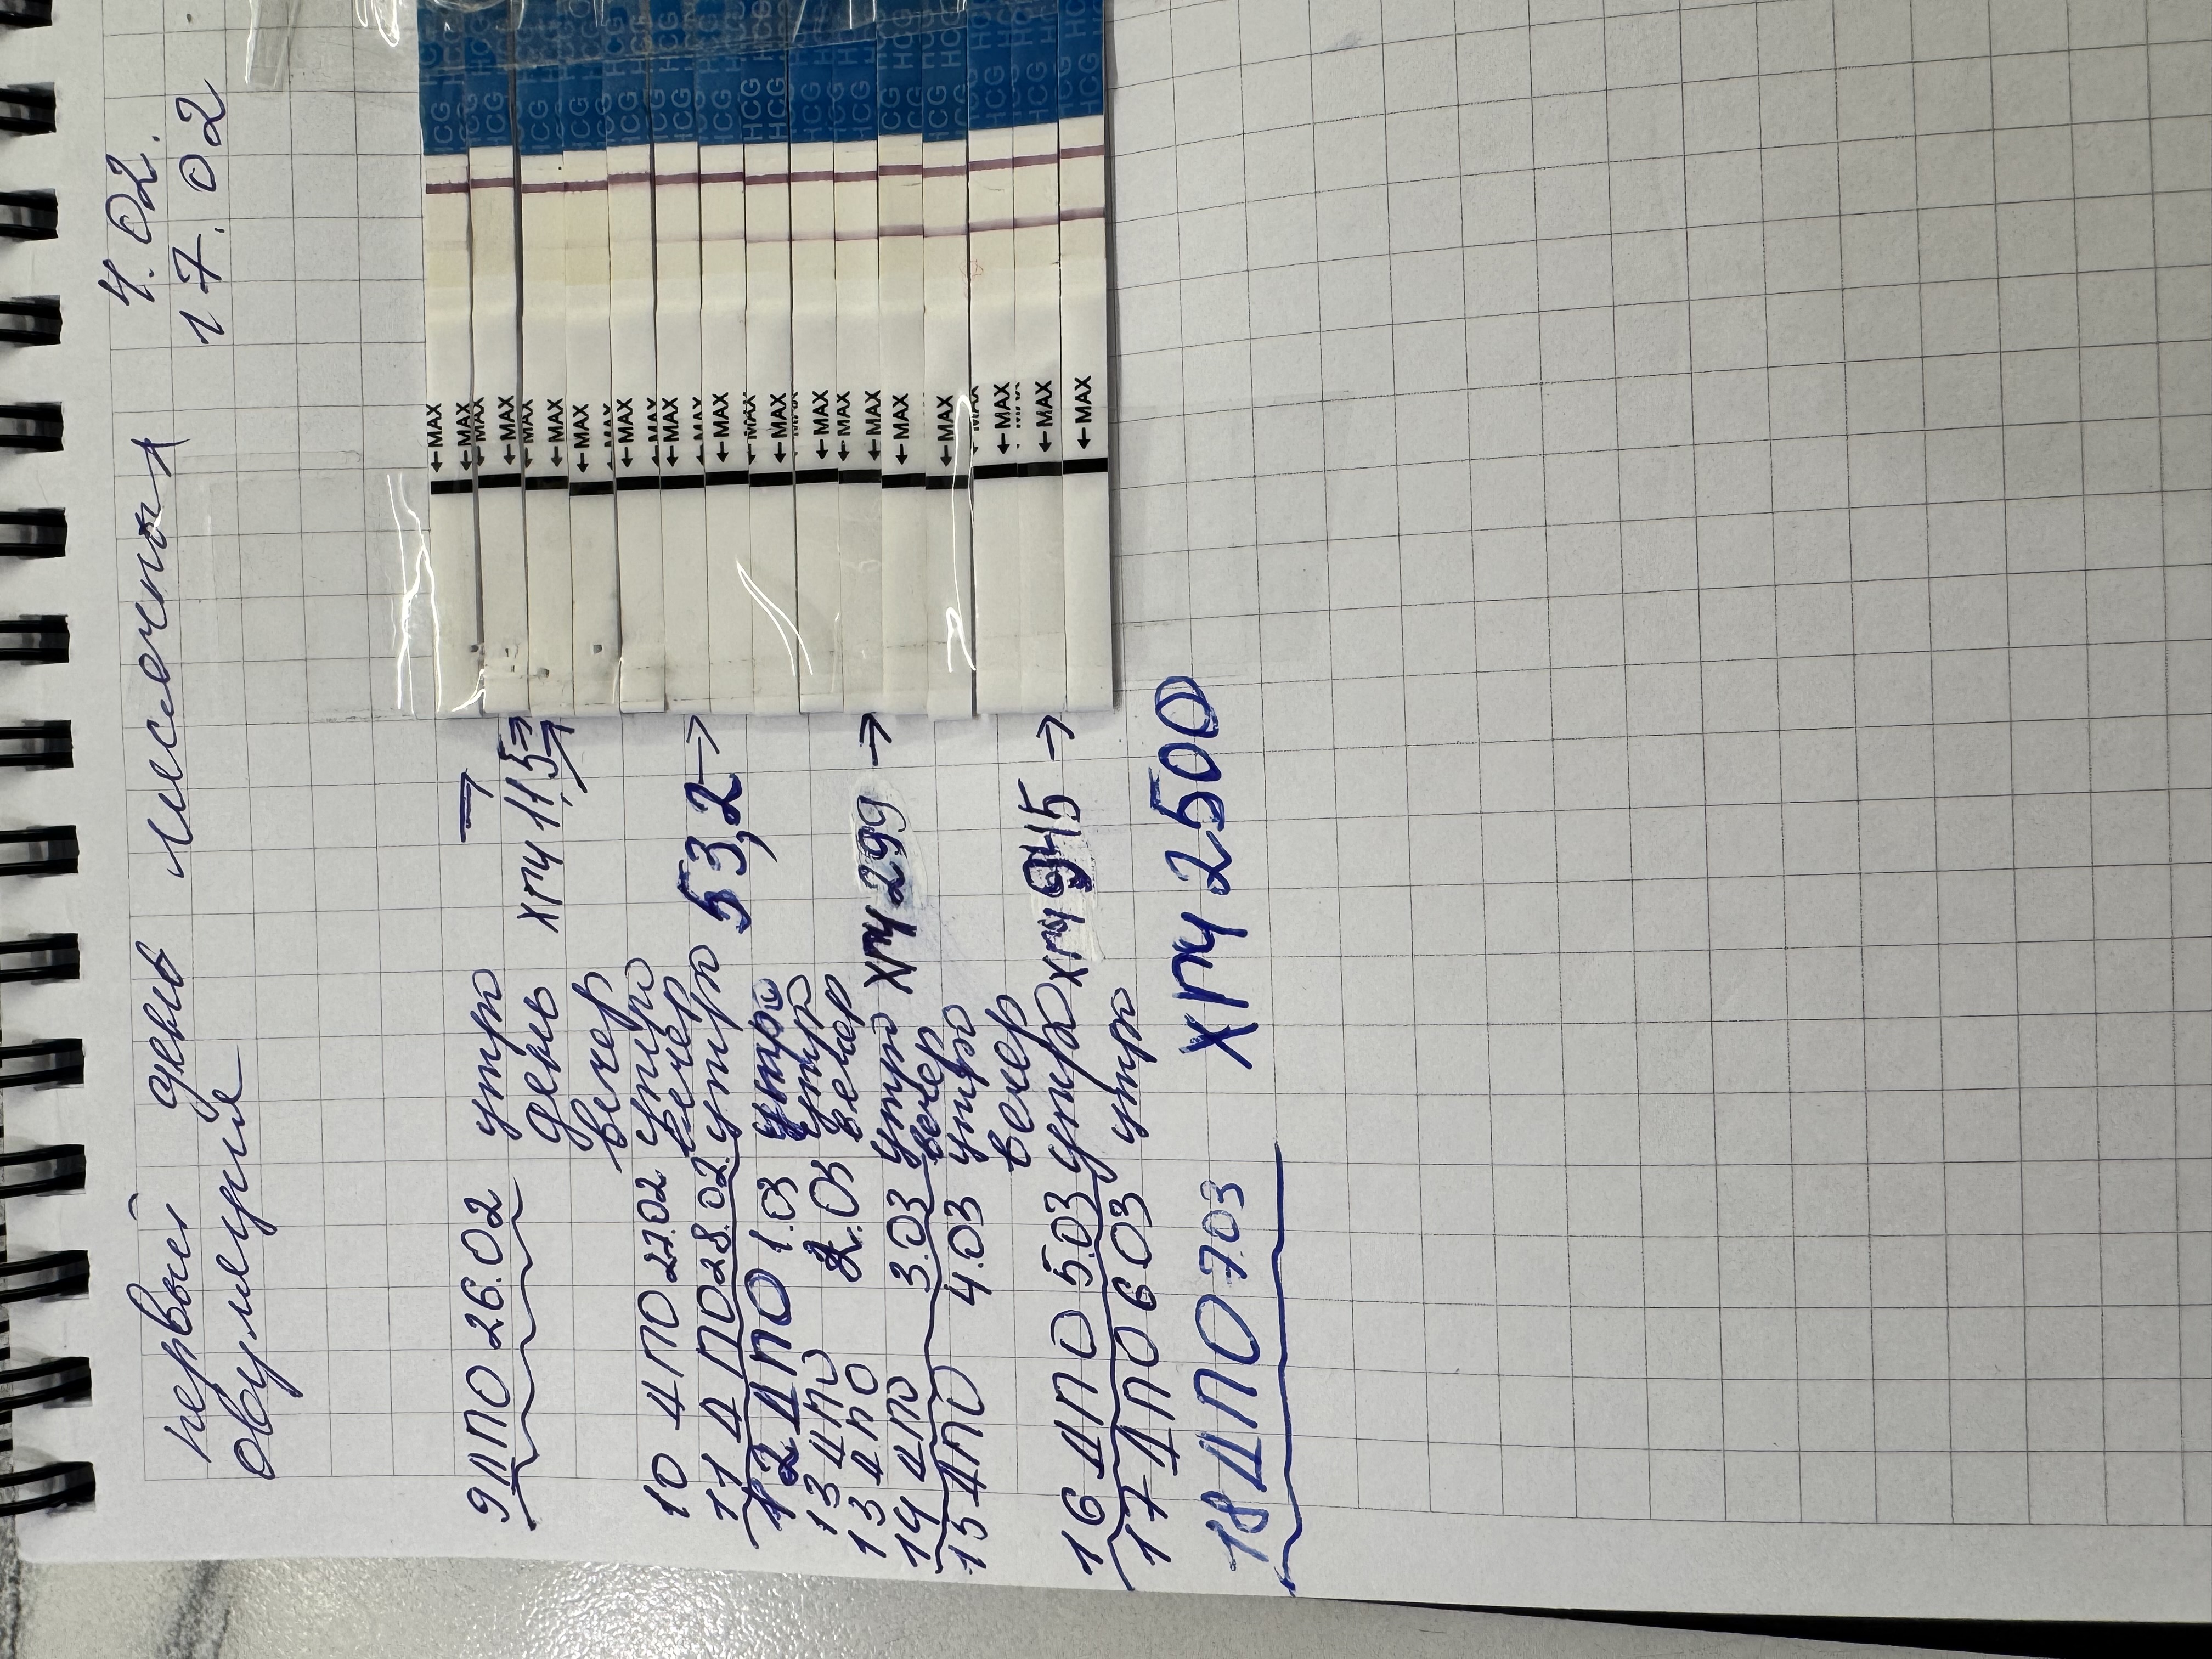 первый день месячных 4.02.
овуляция 17.02
9 ДПО 26.02 утро
день ХГЧ 11,5
вечер
10 ДПО 27.02 утро
вечер
11 ДПО 28.02. утро 53,2
12 ДПО 1.03 утро
13 ДПО 2.03 утро
13 ДПО вечер
14 ДПО 3.03 утро ХГЧ 299
вечер
15 ДПО 4.03 утро
вечер
16 ДПО 5.03 утро ХГЧ 945
17 ДПО 6.03 утро
18 ДПО 7.03 ХГЧ 2500
HCG HCG HCG HCG HCG HCG HCG HCG HCG HCG HCG HCG HCG HCG HCG
←MAX ←MAX ←MAX ←MAX ←MAX ←MAX ←MAX ←MAX ←MAX ←MAX ←MAX ←MAX ←MAX ←MAX ←MAX